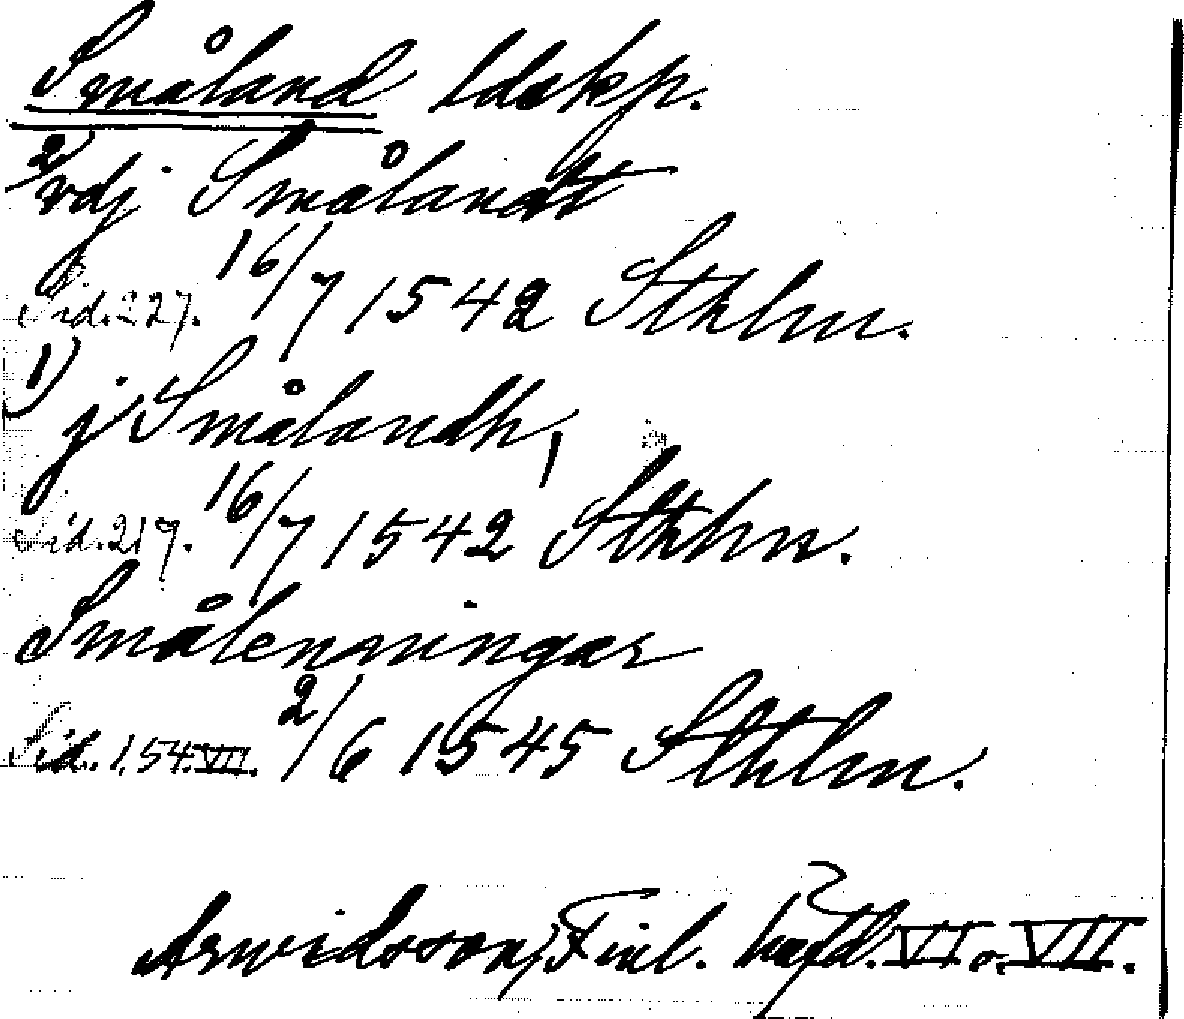 Småland ldskp.
2) vdj Smålandt
Sid. 227. 16/7 1542 Sthlm.
1) j Smålandh,
Sid. 217. 16/7 1542 Sthlm.
Smålenningar
Sid. 154. VII. 2/6 1545 Sthlm.
Arwidsson, Finl. häfd. VI o. VII.